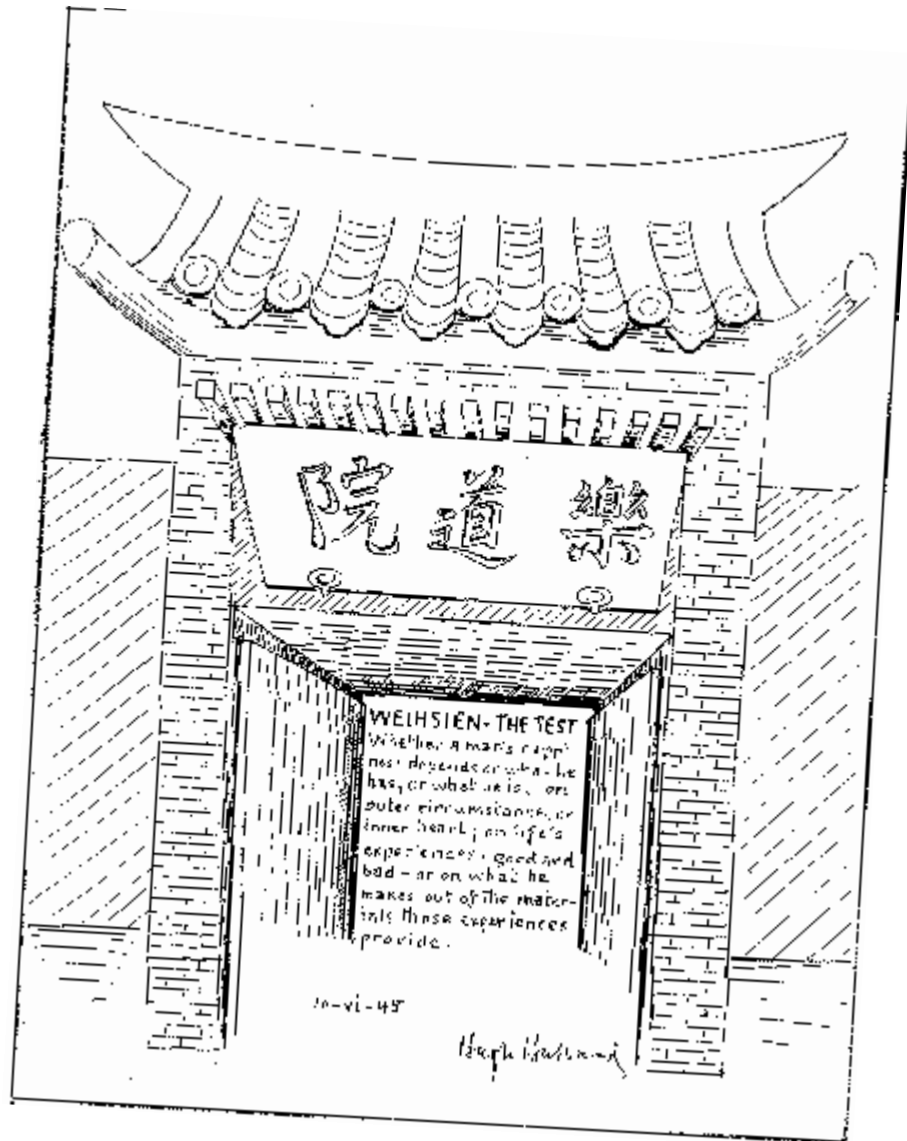 樂道院
WEIHSIEN - THE TEST
Whether a man's happi-
ness depends on what he
has, or what he is; on
outer circumstance, or
inner heart; on life's
experiences, good and
bad - or on what he
makes out of the mater-
ials those experiences
provide.
10-vi-45
Hugh Hubbard